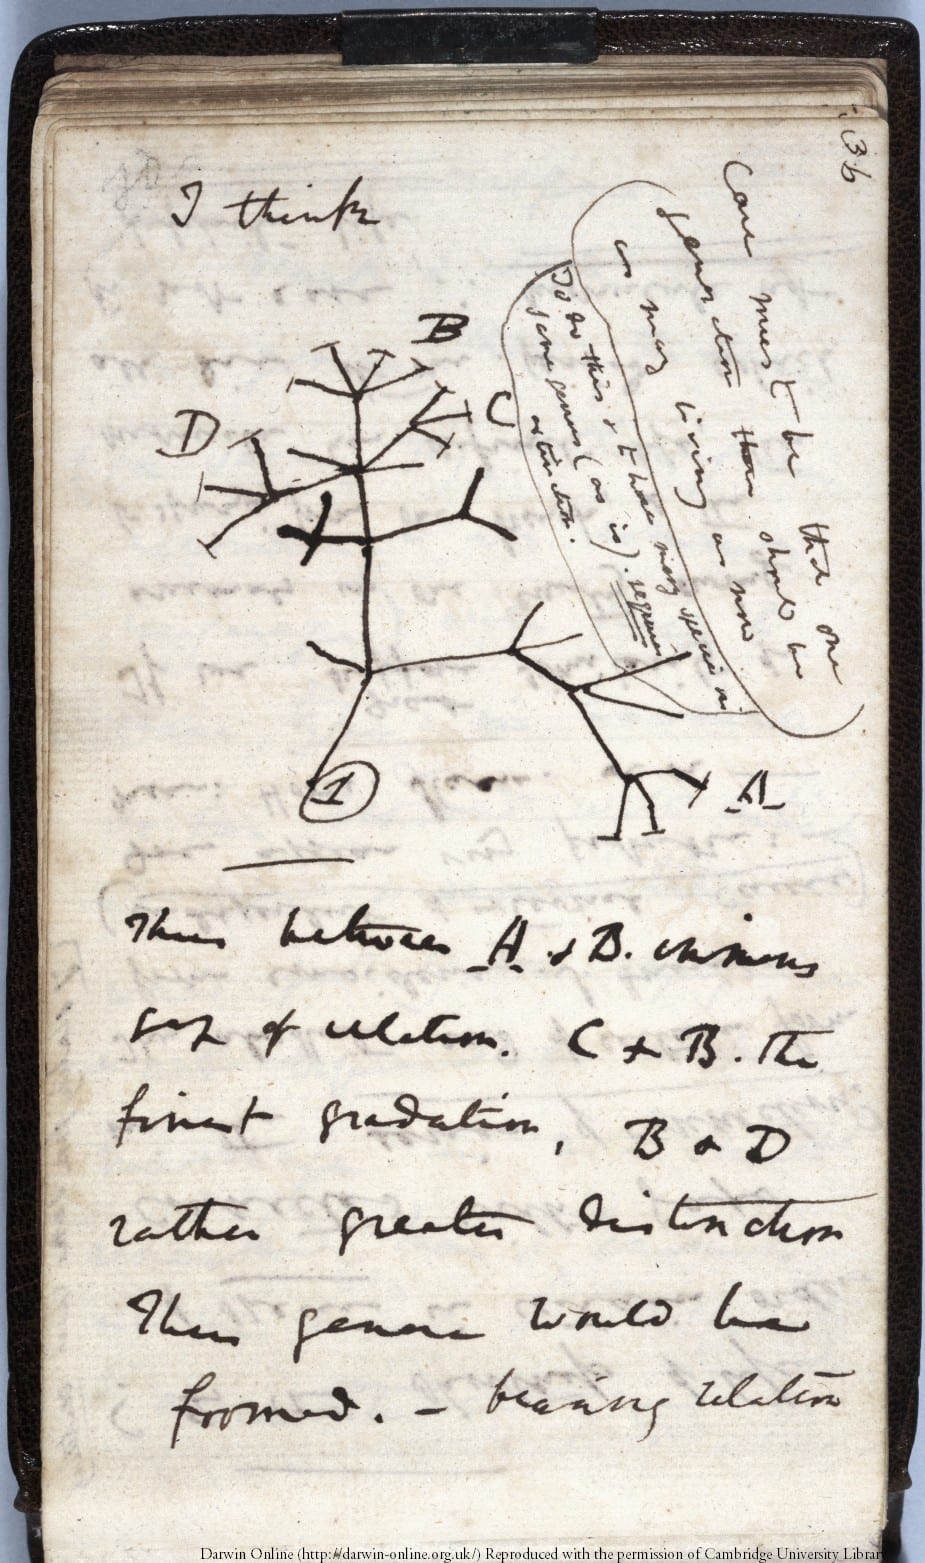 36
I think
Case must be that one
generation then should be
as many living as now
To do this & to have many species in
same genus (as is). requires
extinction.
B
C
D
A
1
Thus between A & B. immens
gap of relation. C & B. the
finest gradation, B & D
rather greater distinction
Thus genera would be
formed. — bearing relation
Darwin Online (http://darwin-online.org.uk/) Reproduced with the permission of Cambridge University Librar